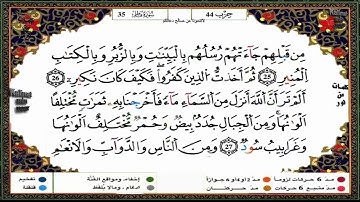 سورة فاطر 35
حزب 44
مِن قَبْلِهِمْ جَآءَتْهُمْ رُسُلُهُم بِٱلْبَيِّنَٰتِ وَبِٱلزُّبُرِ وَبِٱلْكِتَٰبِ
ٱلْمُنِيرِ 25 ثُمَّ أَخَذْتُ ٱلَّذِينَ كَفَرُوا۟ فَكَيْفَ كَانَ نَكِيرِ 26
أَلَمْ تَرَ أَنَّ ٱللَّهَ أَنزَلَ مِنَ ٱلسَّمَآءِ مَآءً فَأَخْرَجْنَا بِهِۦ ثَمَرَٰتٍ مُّخْتَلِفًا
أَلْوَٰنُهَا وَمِنَ ٱلْجِبَالِ جُدَدٌۢ بِيضٌ وَحُمْرٌ مُّخْتَلِفٌ أَلْوَٰنُهَا
وَغَرَابِيبُ سُودٌ 27 وَمِنَ ٱلنَّاسِ وَٱلدَّوَآبِّ وَٱلْأَنْعَٰمِ
مد 6 حركات لزوماً مد 2 أو 4 أو 6 جوازاً إخفاء، ومواقع الغنّة تفخيم
مد مشبع 6 حركات مد حركتان إدغام، وما لا يلفظ قلقلة